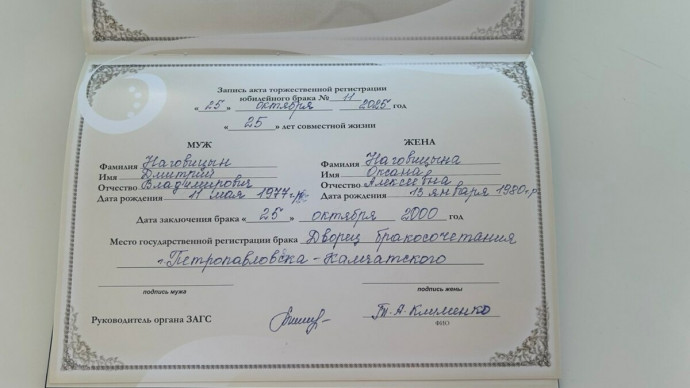 Запись акта торжественной регистрации
юбилейного брака № 11
« 25 » октября 2025 год
« 25 » лет совместной жизни
МУЖ
Фамилия Наговицын
Имя Дмитрий
Отчество Владимирович
Дата рождения 11 мая 1977 г.р.
ЖЕНА
Фамилия Наговицына
Имя Оксана
Отчество Алексеевна
Дата рождения 13 января 1980 г.р.
Дата заключения брака « 25 » октября 2000 год
Место государственной регистрации брака Дворец бракосочетания
г. Петропавловска-Камчатского
подпись мужа
подпись жены
Руководитель органа ЗАГС
Т.А. Клименко
ФИО